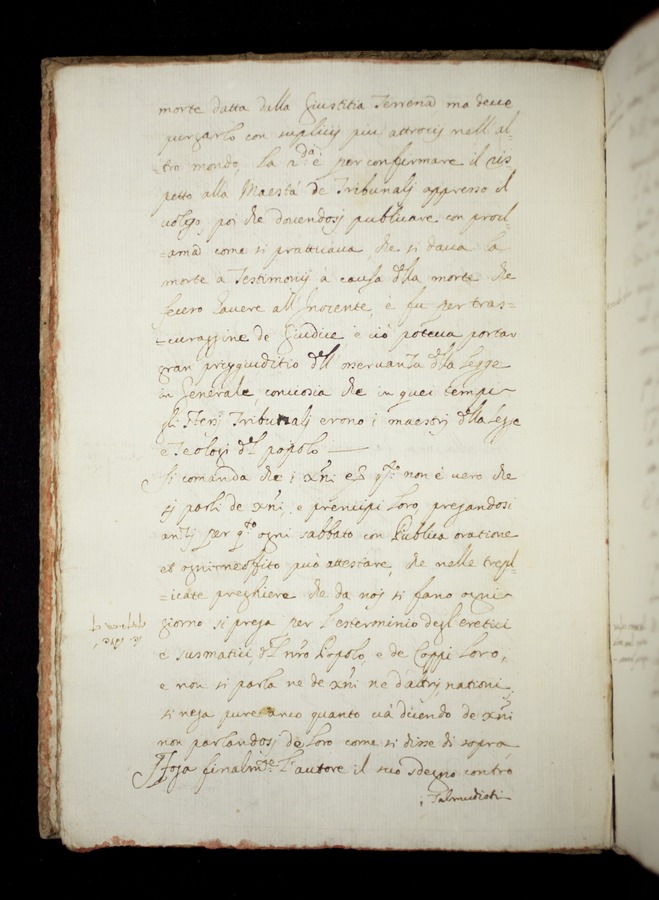 morte datta dalla Giustitia Terrena ma deve
purgarlo con suplicij più attrocij nell al-
-tro mondo, la 2.da è per confirmare il ris
petto alla Maestà de Tribunalj appresso il
volgo, poi che dovendosj publicare con procl-
-ama come si pratticava, che si dava la
morte a Testimonij à causa della morte che
fecero havere all'Inocente, è fu per tras-
-curaggine de Giudice è ciò poteva portar
gran preggiuditio dell osservanza della Legge
in Generale, conciosia che in quei tempi
gli stessj Tribunalj erono i maestrj della Legge
e Teologi del popolo
Si comanda che i xñi et q.to non è vero che
sj parli de xñi, e prencipi loro, pregandosi
anzi per q.to ogni sabbato con Publica oratione
et ogni neoffito può attestare, che nelle trepl-
-icate preghiere che da noj si fano ogni
giorno si prega per l'esterminio degl'eretici
è susmatici del nro Popolo, e de Coppi loro,
e non si parla ne de xñi ne d'altrj nationi
si nega pure anco quanto và dicendo de xñi
non parlandosj de loro come si disse di sopra,
Sfoga finalm.te l'autore il suo sdegno contro
i Talmudisti